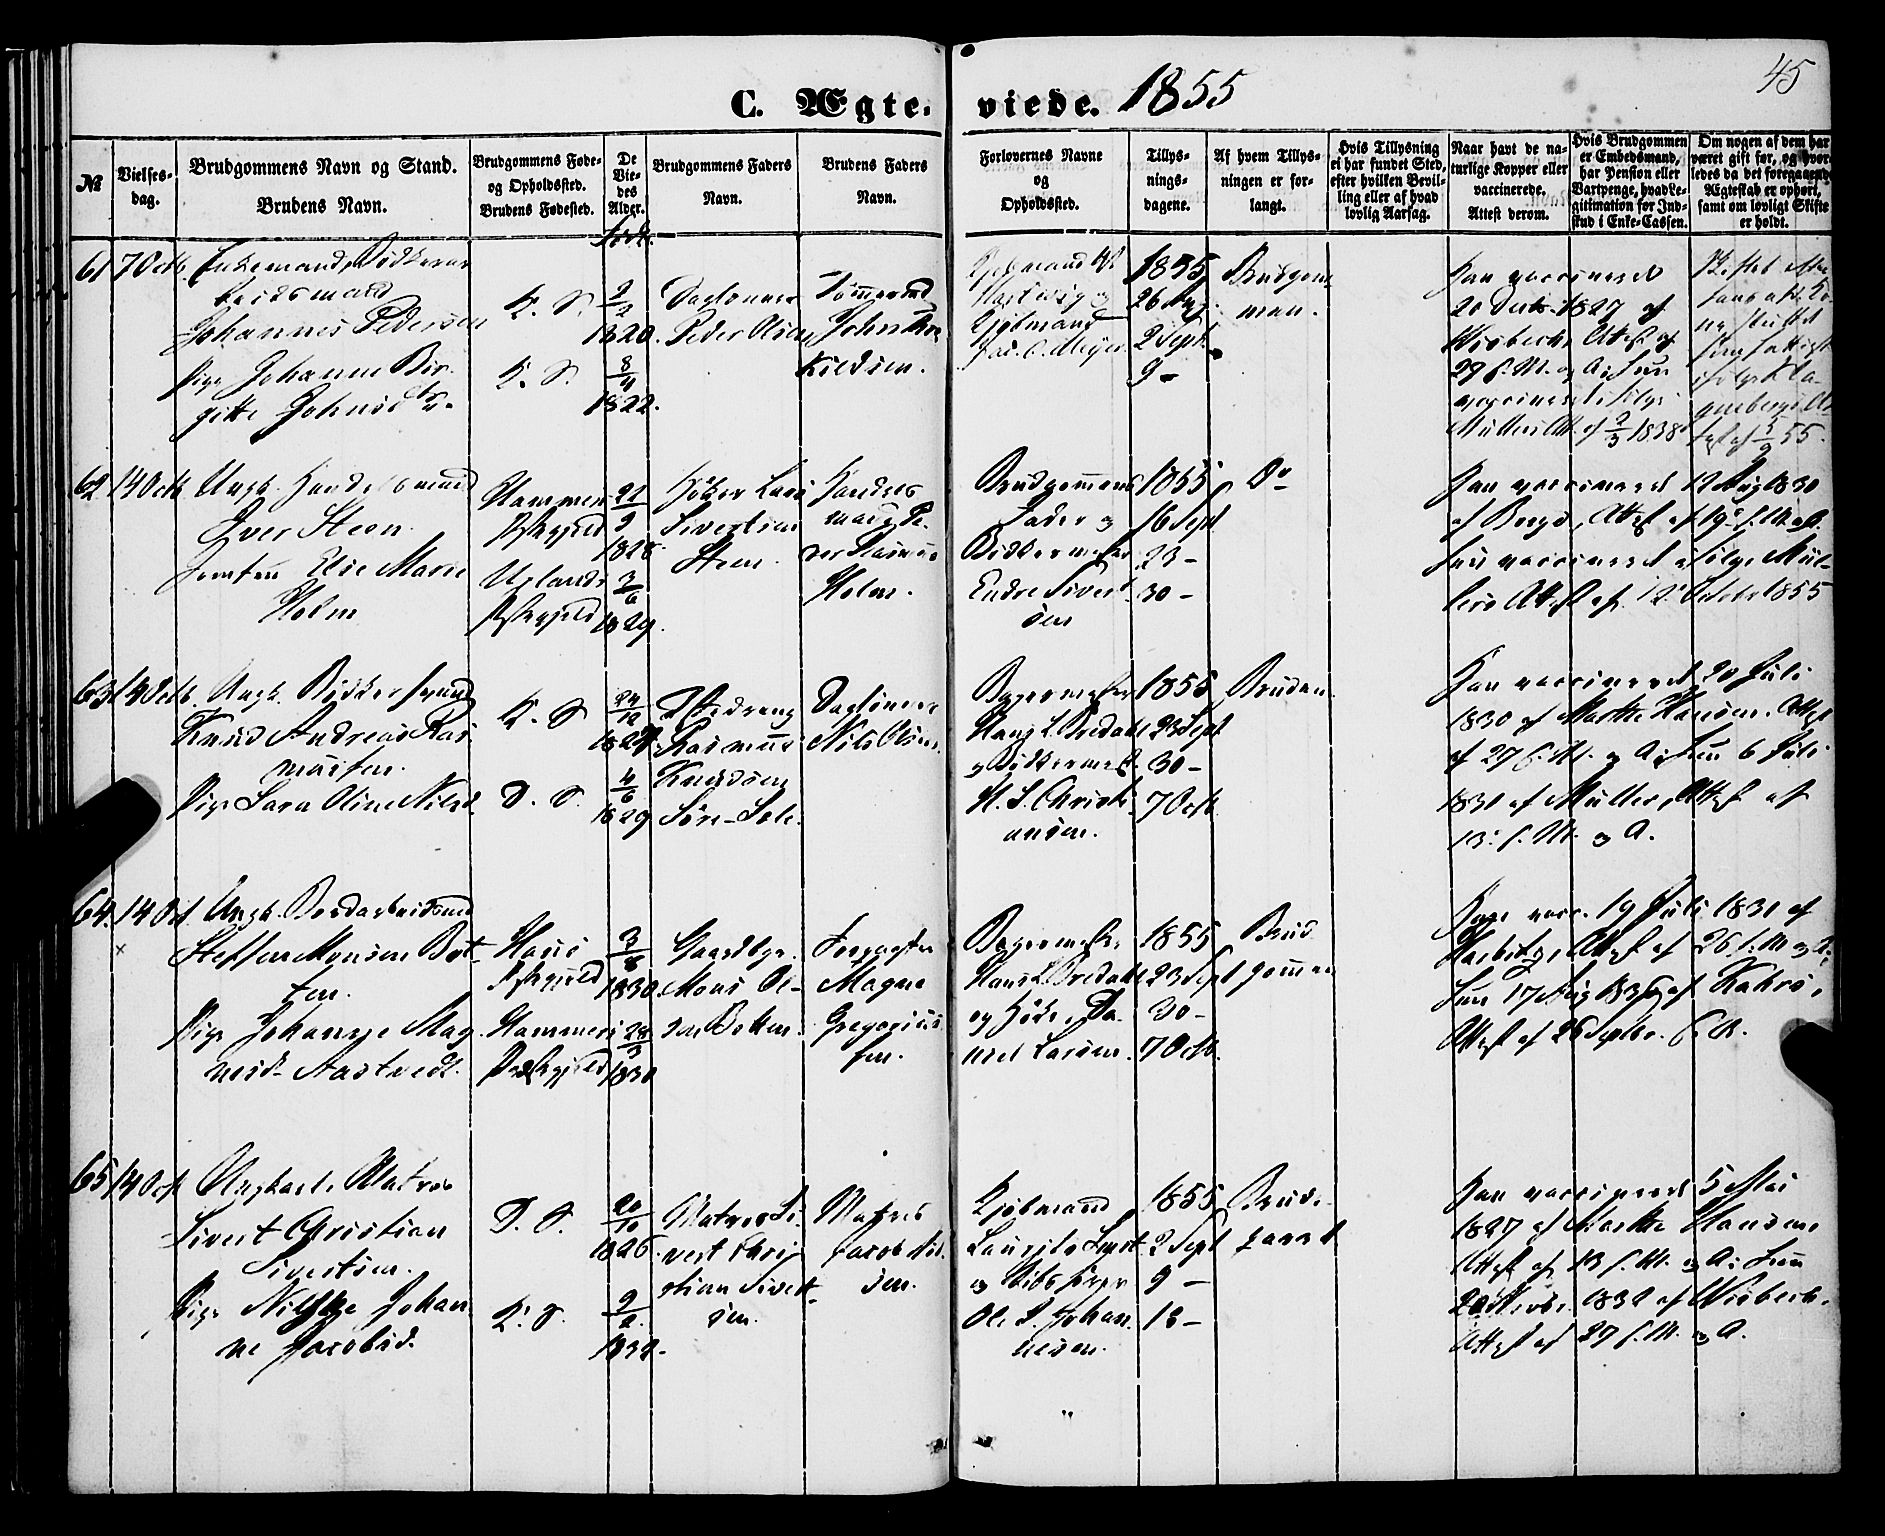 C. Ægte-viede. 1855
45
№
Vielses-
dag.
Brudgommens Navn og Stand.
Brudens Navn.
Brudgommens Føde-
og Opholdssted.
Brudens Fødested.
De
Vie-
des
Alder.
Brudgommens Faders
Navn.
Brudens Faders
Navn.
Forlovernes Navne
og
Opholdssted.
Tillys-
nings-
dagene.
Af hvem Tillys-
ningen er for-
langt.
Hvis Tillysning
ei har fundet Sted,
efter hvilken Bevil-
ling eller af hvad
lovlig Aarsag.
Naar havt de na-
turlige Kopper eller
vaccinerede.
Attest derom.
Hvis Brudgommen
er Embedsmand,
har Pension eller
Vartpenge, hvad Le-
gitimation for Ind-
skud i Enke-Cassen.
Om nogen af dem har
været gift før, og hvor-
ledes da det foregaaende
Ægteskab er ophørt,
samt om lovligt Skifte
er holdt.
født.
61
7 Octb.
Enkemand, Bødkerar-
beidsmand
Johannes Pedersen
Pige Johanne Bir-
gitte Johnsd.
K. S.
K. S.
9/2
1820.
8/4
1822.
Dagleiner
Peder Olsen
Tømmermd
John
Kildsen.
Kjøbmand
Hartwig og
Kjøbmand
Jac. C. Meyer.
1855
26 Aug.
2 Sept.
9 -
Brudgom
men.
Han vaccineret
20 1827 af
Wisbech, Attest af
29 f. M. og A; Hun
vaccineret ifølge
Müllers Att. af 9/3 1838
af 5/9 55.
62
14 Octb.
Ungk. Handelsmand
Iver Steen.
Jomfru Elise Marie
Holm
Hammer
Præstegjeld
Urlands
Præstegjeld
21/9
1828.
3/6
1829.
Høker Lars
Sivertsen
Steen.
Handels
mand Pe-
der Rasmus
Holm.
Brudgommens
Fader og
Bødkermester
Endre Sivert
sen
1855
16 Sept
23 -
30 -
Do
Han vaccineret 12 Aug 1830
af Borgs, Attest af 19de f. M. og A.
Hun vaccineret ifølge Mül-
lers Attest af 12 Octbr 1855
63
14 Octb.
Ungk. Bødkersvend
Knud Andreas Ras-
mussen.
Pige Sara Oline Nilsd.
K. S.
D. S.
24/12
1827.
4/6
1829
Rasmus
Knudsen
Dagleiner
Nils Olsen.
Bagermester
Hans L. Bredahl
og Bødkermest.
H. S. Christi
ansen.
1855
23 Sept
30 -
7 Octb.
Bruden.
Han vaccineret 20 Juli
1830 af Marthe Hansen, Attest
af 27 f. M. og A; Hun 6 Juli
1831 af Müller, Attest af
13. f. M. og A.
64.
14 Oct
×
Ungk. Bordarbeidsmd
Steffen Monsen Bot-
ten.
Pige Johanne Mag
nesd. Aastvedt.
Haus
Præstegjeld
Hammers
Præstegjeld
3/8
1830.
1830
Gaardbr.
Mons Ol-
sen Botten.
Magne
Gregorius
sen.
Bagermester
Hans L. Bredahl
og Høker Da-
niel Larsen.
1855
23 Sept
30 -
7 Octb.
Brud
gommen
Han vacc. 19 Juli 1831 af
Attest af 26 f. M og A;
Hun 17 Aug af Kahrs,
Attest af 26 Septbr. f. A.
65
14 Oct
Ungkarl, Matros
Sivert Christian
Sivertsen.
Pige Nilske Johan
ne Jacobsd.
D. S.
K. S.
20/10
1826.
9/2
1832.
Matros Si-
vert Chris
tian Sivert-
sen.
Matros
Jacob Nil
sen.
Kjøbmand
Laurits
og Skibsfører
Ole S. Johan
nesen.
1855
2 Sept
9 -
16 -
Brude
parret
Han vaccineret 5 Mai
1827 af Marthe Hansen,
Attest af 13 f. M. og A; Hun
1832 af Wisbech.
Attest af 27 f. M. og A.